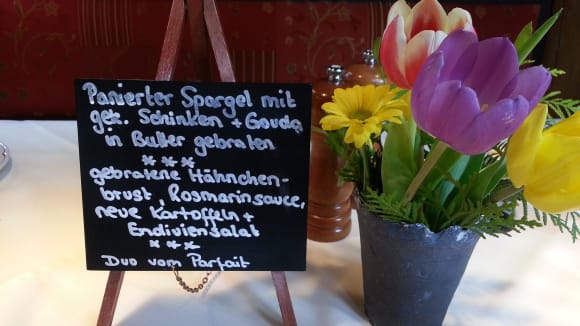 Panierter Spargel mit
gek. Schinken + Gouda
in Butter gebraten
***
gebratene Hähnchen-
brust, Rosmarinsauce,
neue Kartoffeln +
Endiviensalat
***
Duo vom Parfait